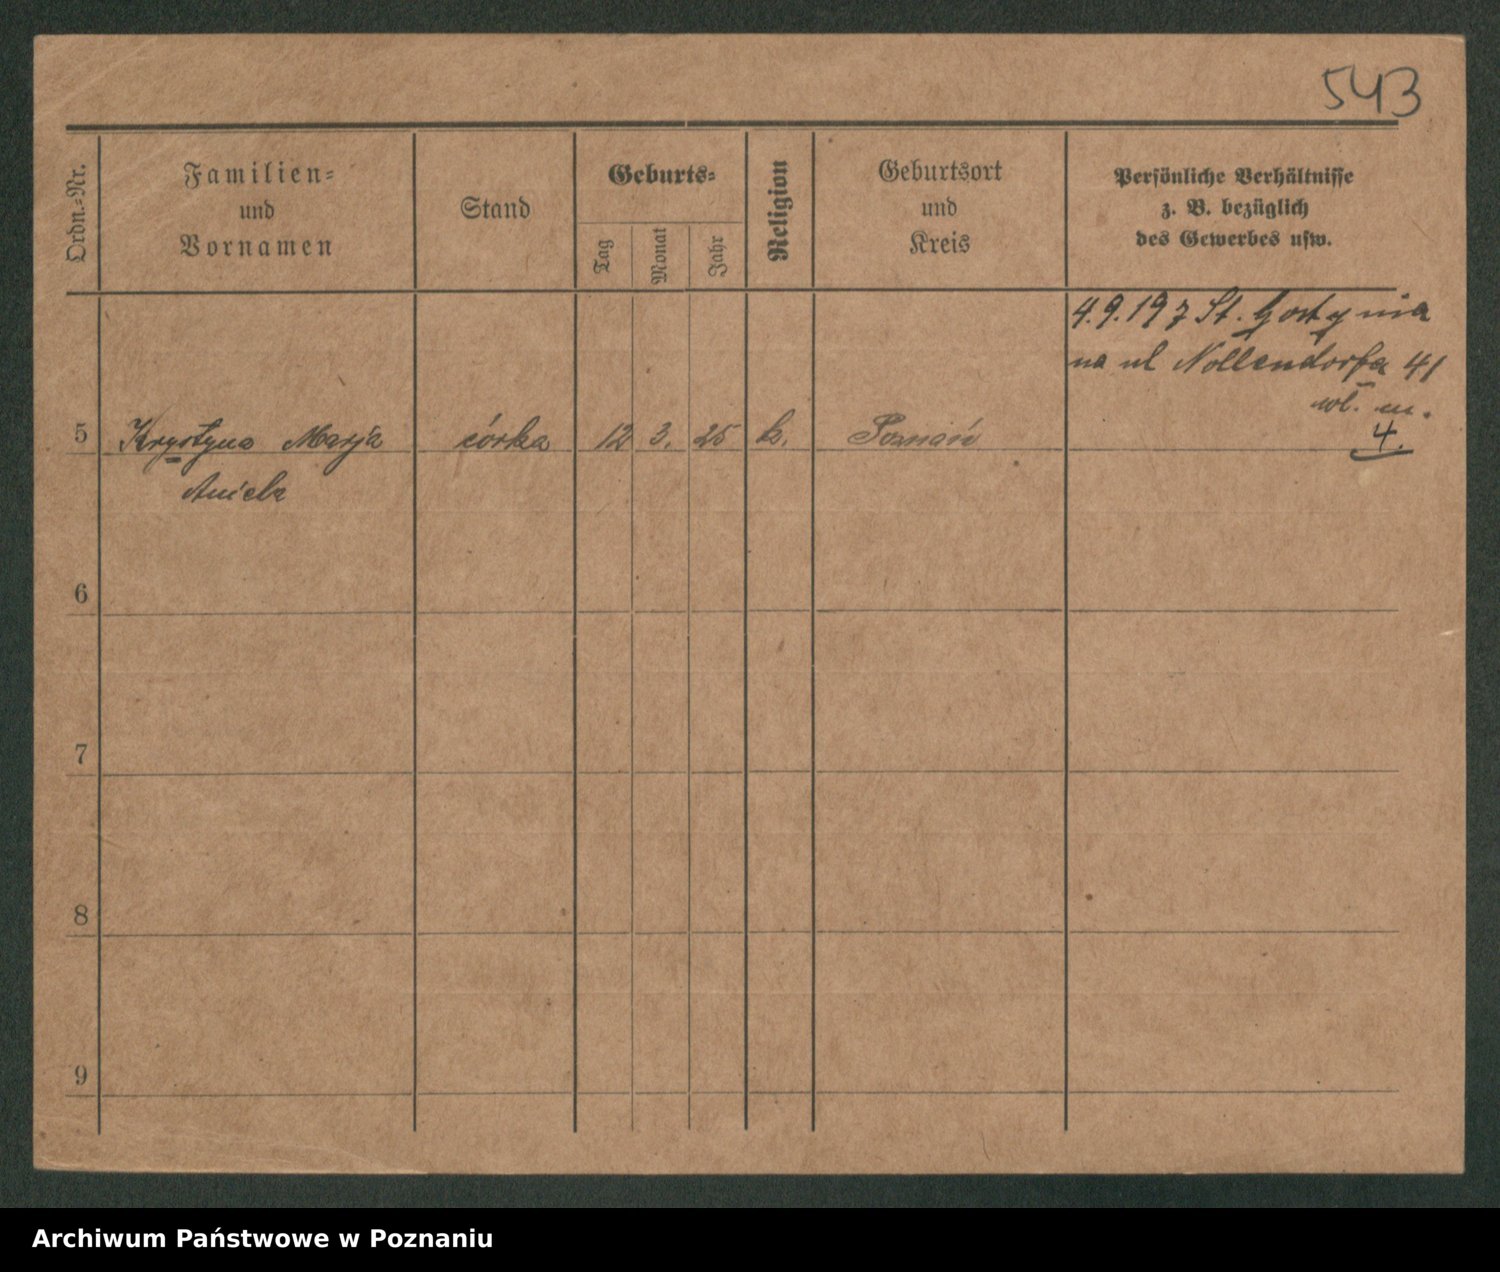 543
Ordn.-Nr.
Familien-
und
Vornamen
Stand
Geburts-
Tag
Monat
Jahr
Religion
Geburtsort
und
Kreis
Persönliche Verhältnisse
z. B. bezüglich
des Gewerbes usw.
4.9.19 z St.
na ul Nollendorfa 41
m.
4.
5 Krystyna Marja córka 12 3. 25 k. Poznań
Aniela
6
7
8
9
Archiwum Państwowe w Poznaniu